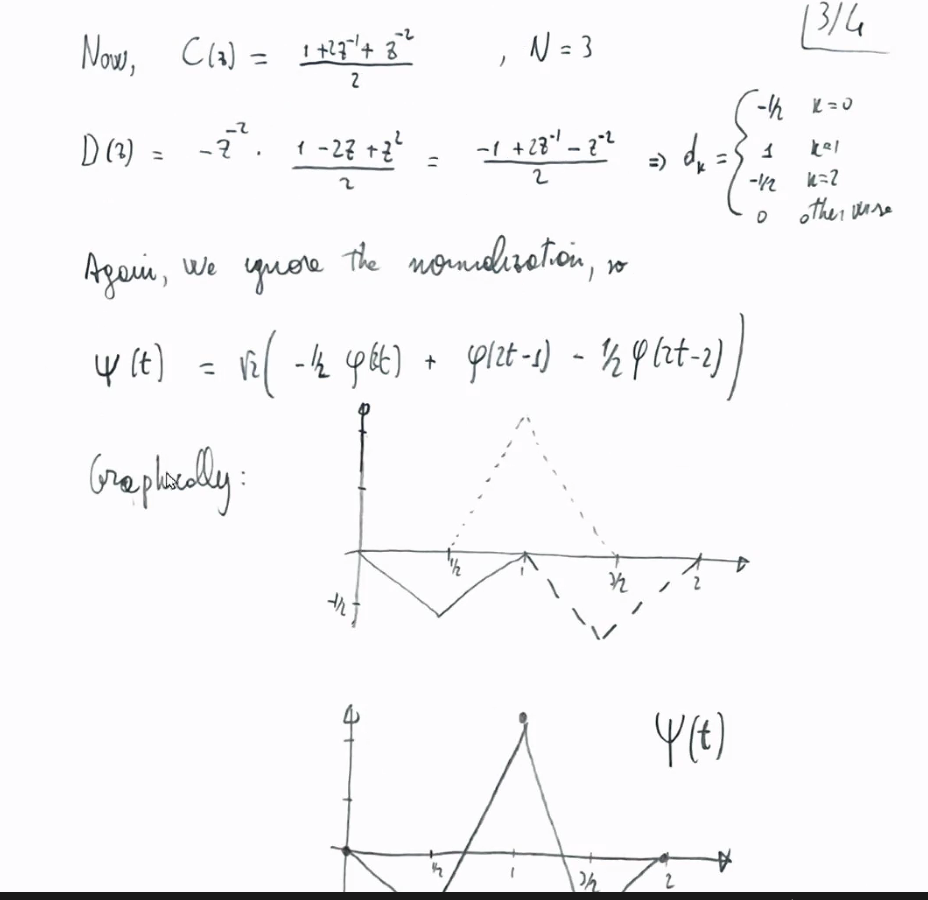 3/4
Now, C(z) = (1+2z⁻¹+z⁻²)/2 , N = 3
D(z) = -z⁻² · (1-2z+z²)/2 = (-1+2z⁻¹-z⁻²)/2 => dₖ = { -1/2 k=0
1 k=1
-1/2 k=2
0 otherwise
Again, we ignore the normalization, so
ψ(t) = √2( -1/2 φ(2t) + φ(2t-1) - 1/2 φ(2t-2) )
Graphically:
1/2 1 3/2 2
-1/2
ψ(t)
1/2 1 3/2 2